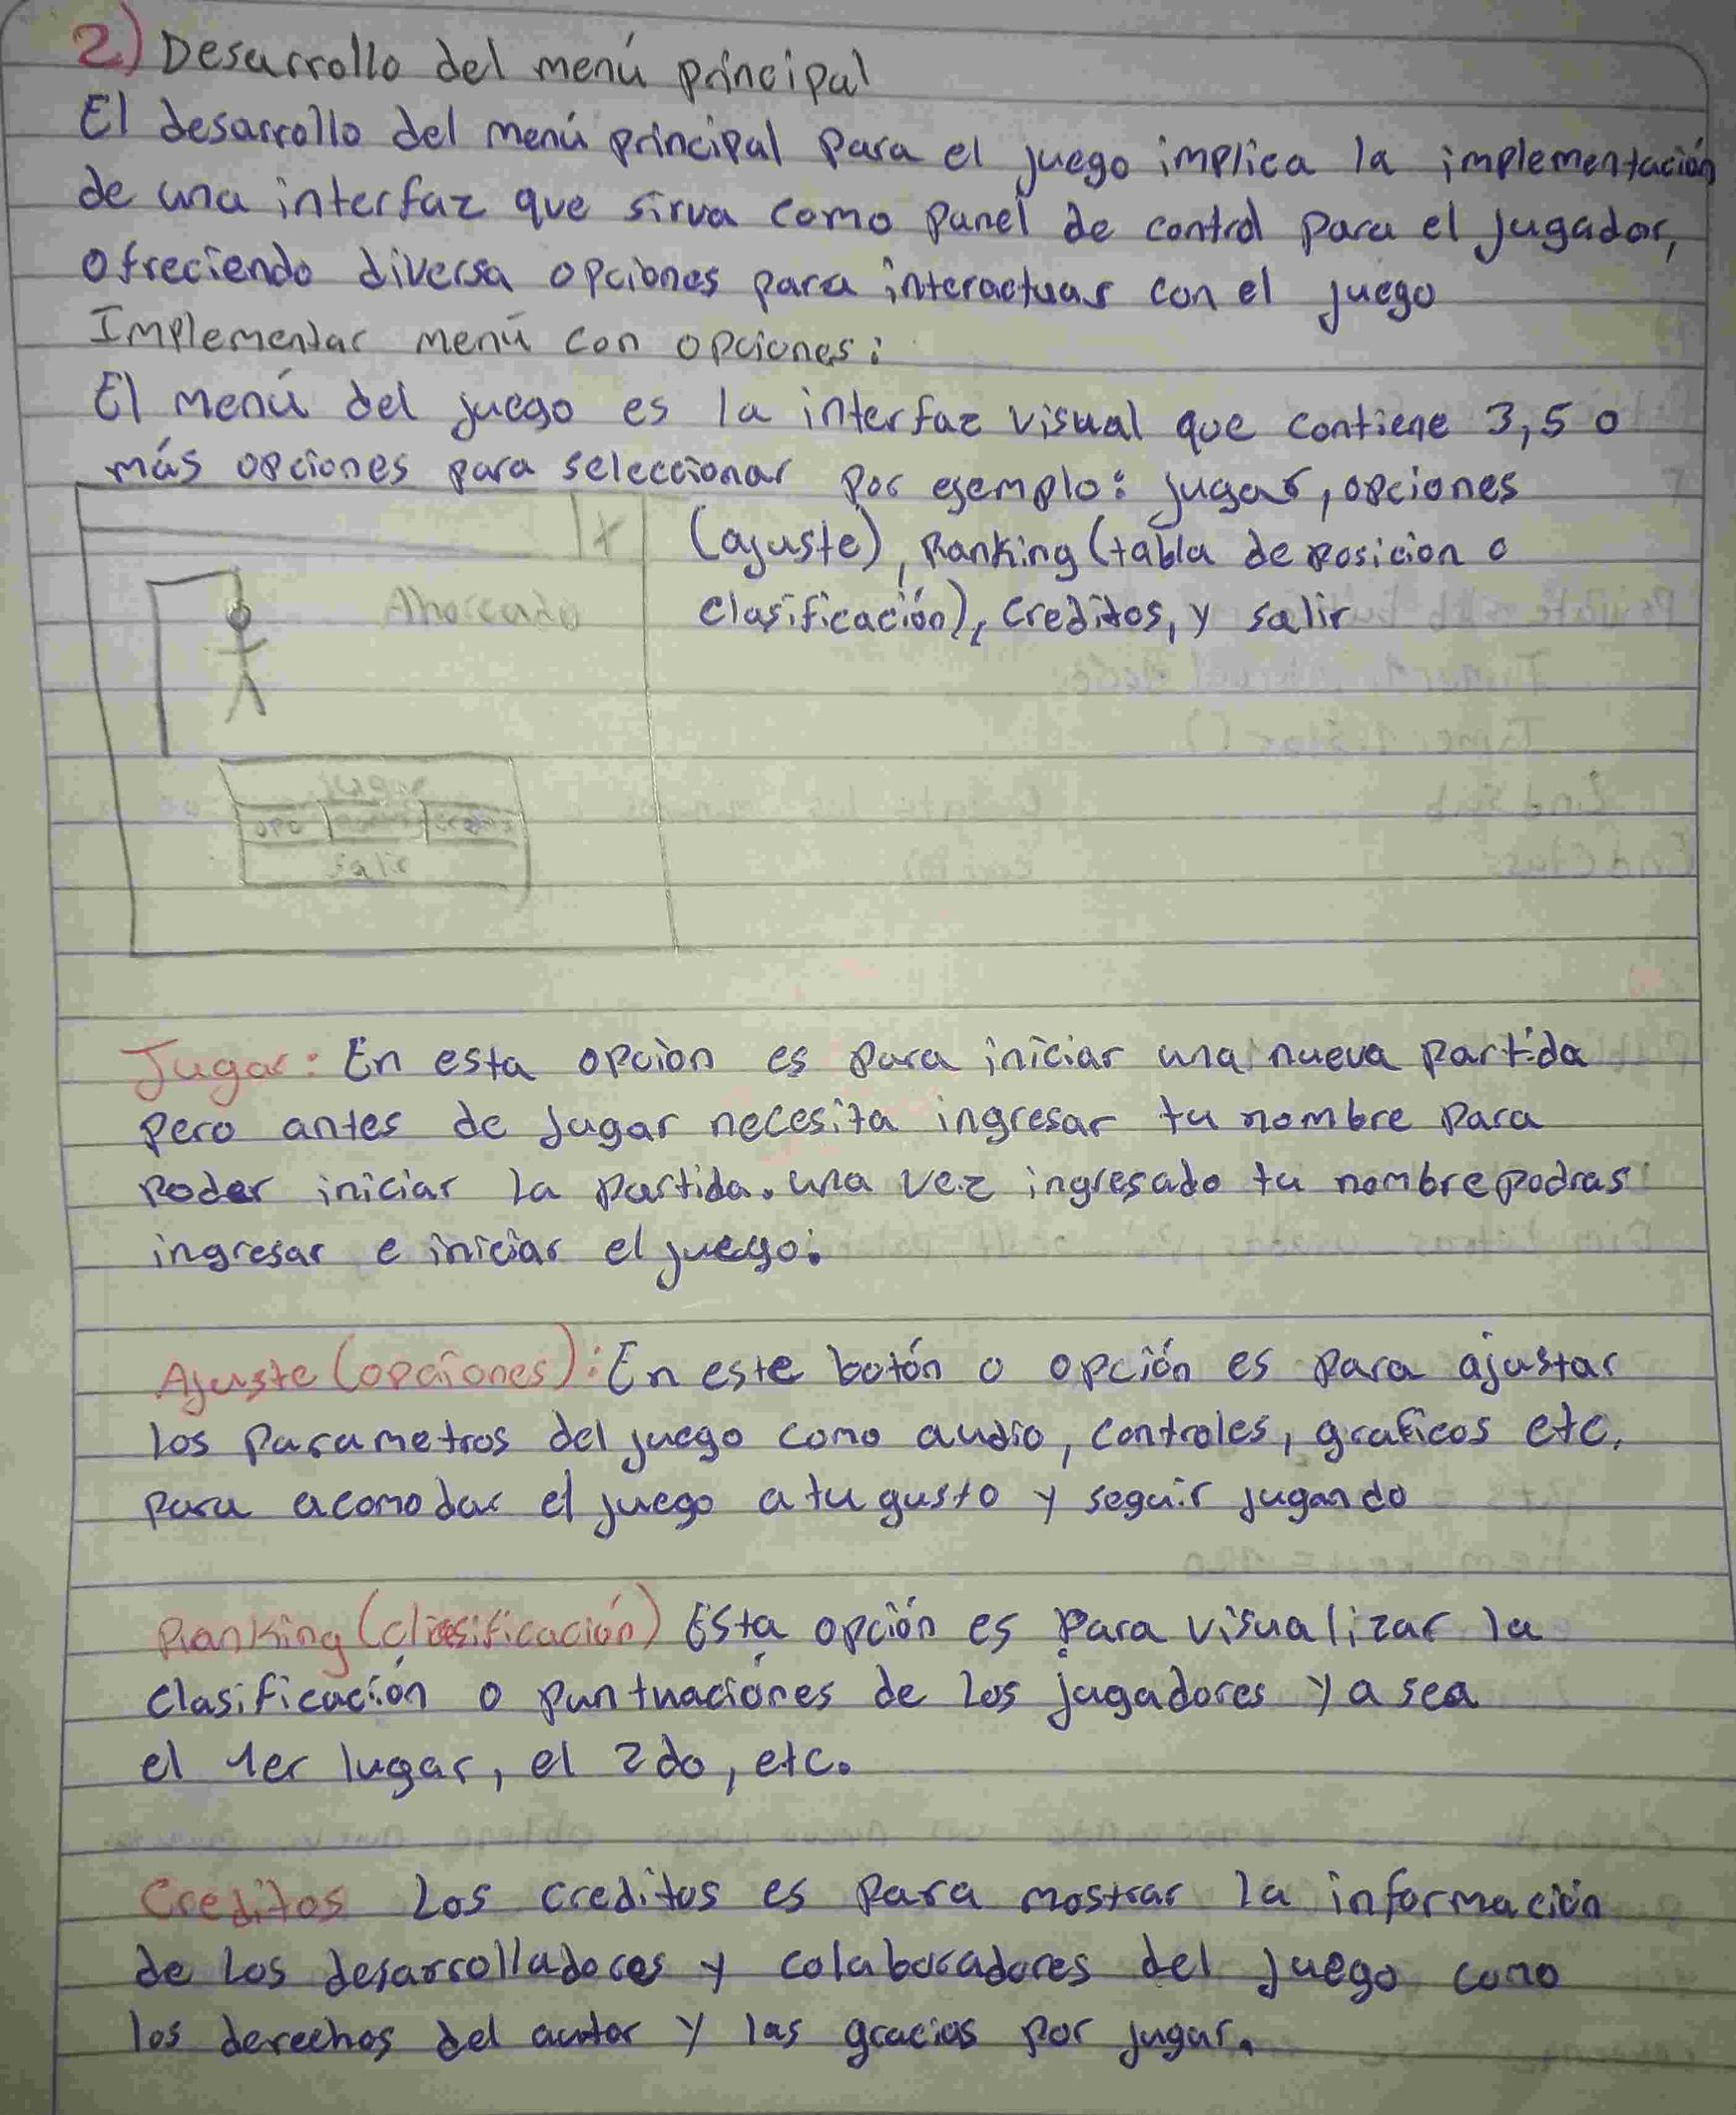 2) Desarrollo del menú principal
El desarrollo del menú principal para el juego implica la implementación
de una interfaz que sirva como panel de control para el jugador,
ofreciendo diversa opciones para interactuar con el juego
Implementar menú con opciones:
El menú del juego es la interfaz visual que contiene 3,5 o
más opciones para seleccionar por ejemplo: jugar, opciones
(ajuste), Ranking (tabla de posicion o
clasificación), creditos, y salir
X
Ahorcado
jugar
opc
salir
Jugar: En esta opcion es para iniciar una nueva partida
pero antes de jugar necesita ingresar tu nombre para
poder iniciar la partida. una vez ingresado tu nombre podras
ingresar e iniciar el juego.
Ajuste (opciones): En este botón o opción es para ajustar
los parametros del juego como audio, controles, graficos etc.
para acomodar el juego a tu gusto y seguir jugando
Ranking (clasificación) Esta opción es para visualizar la
clasificación o puntuaciónes de los jugadores ya sea
el 1er lugar, el 2do, etc.
Creditos Los creditos es para mostrar la información
de los desarrolladores y colaboradores del juego como
los derechos del autor y las gracias por jugar.